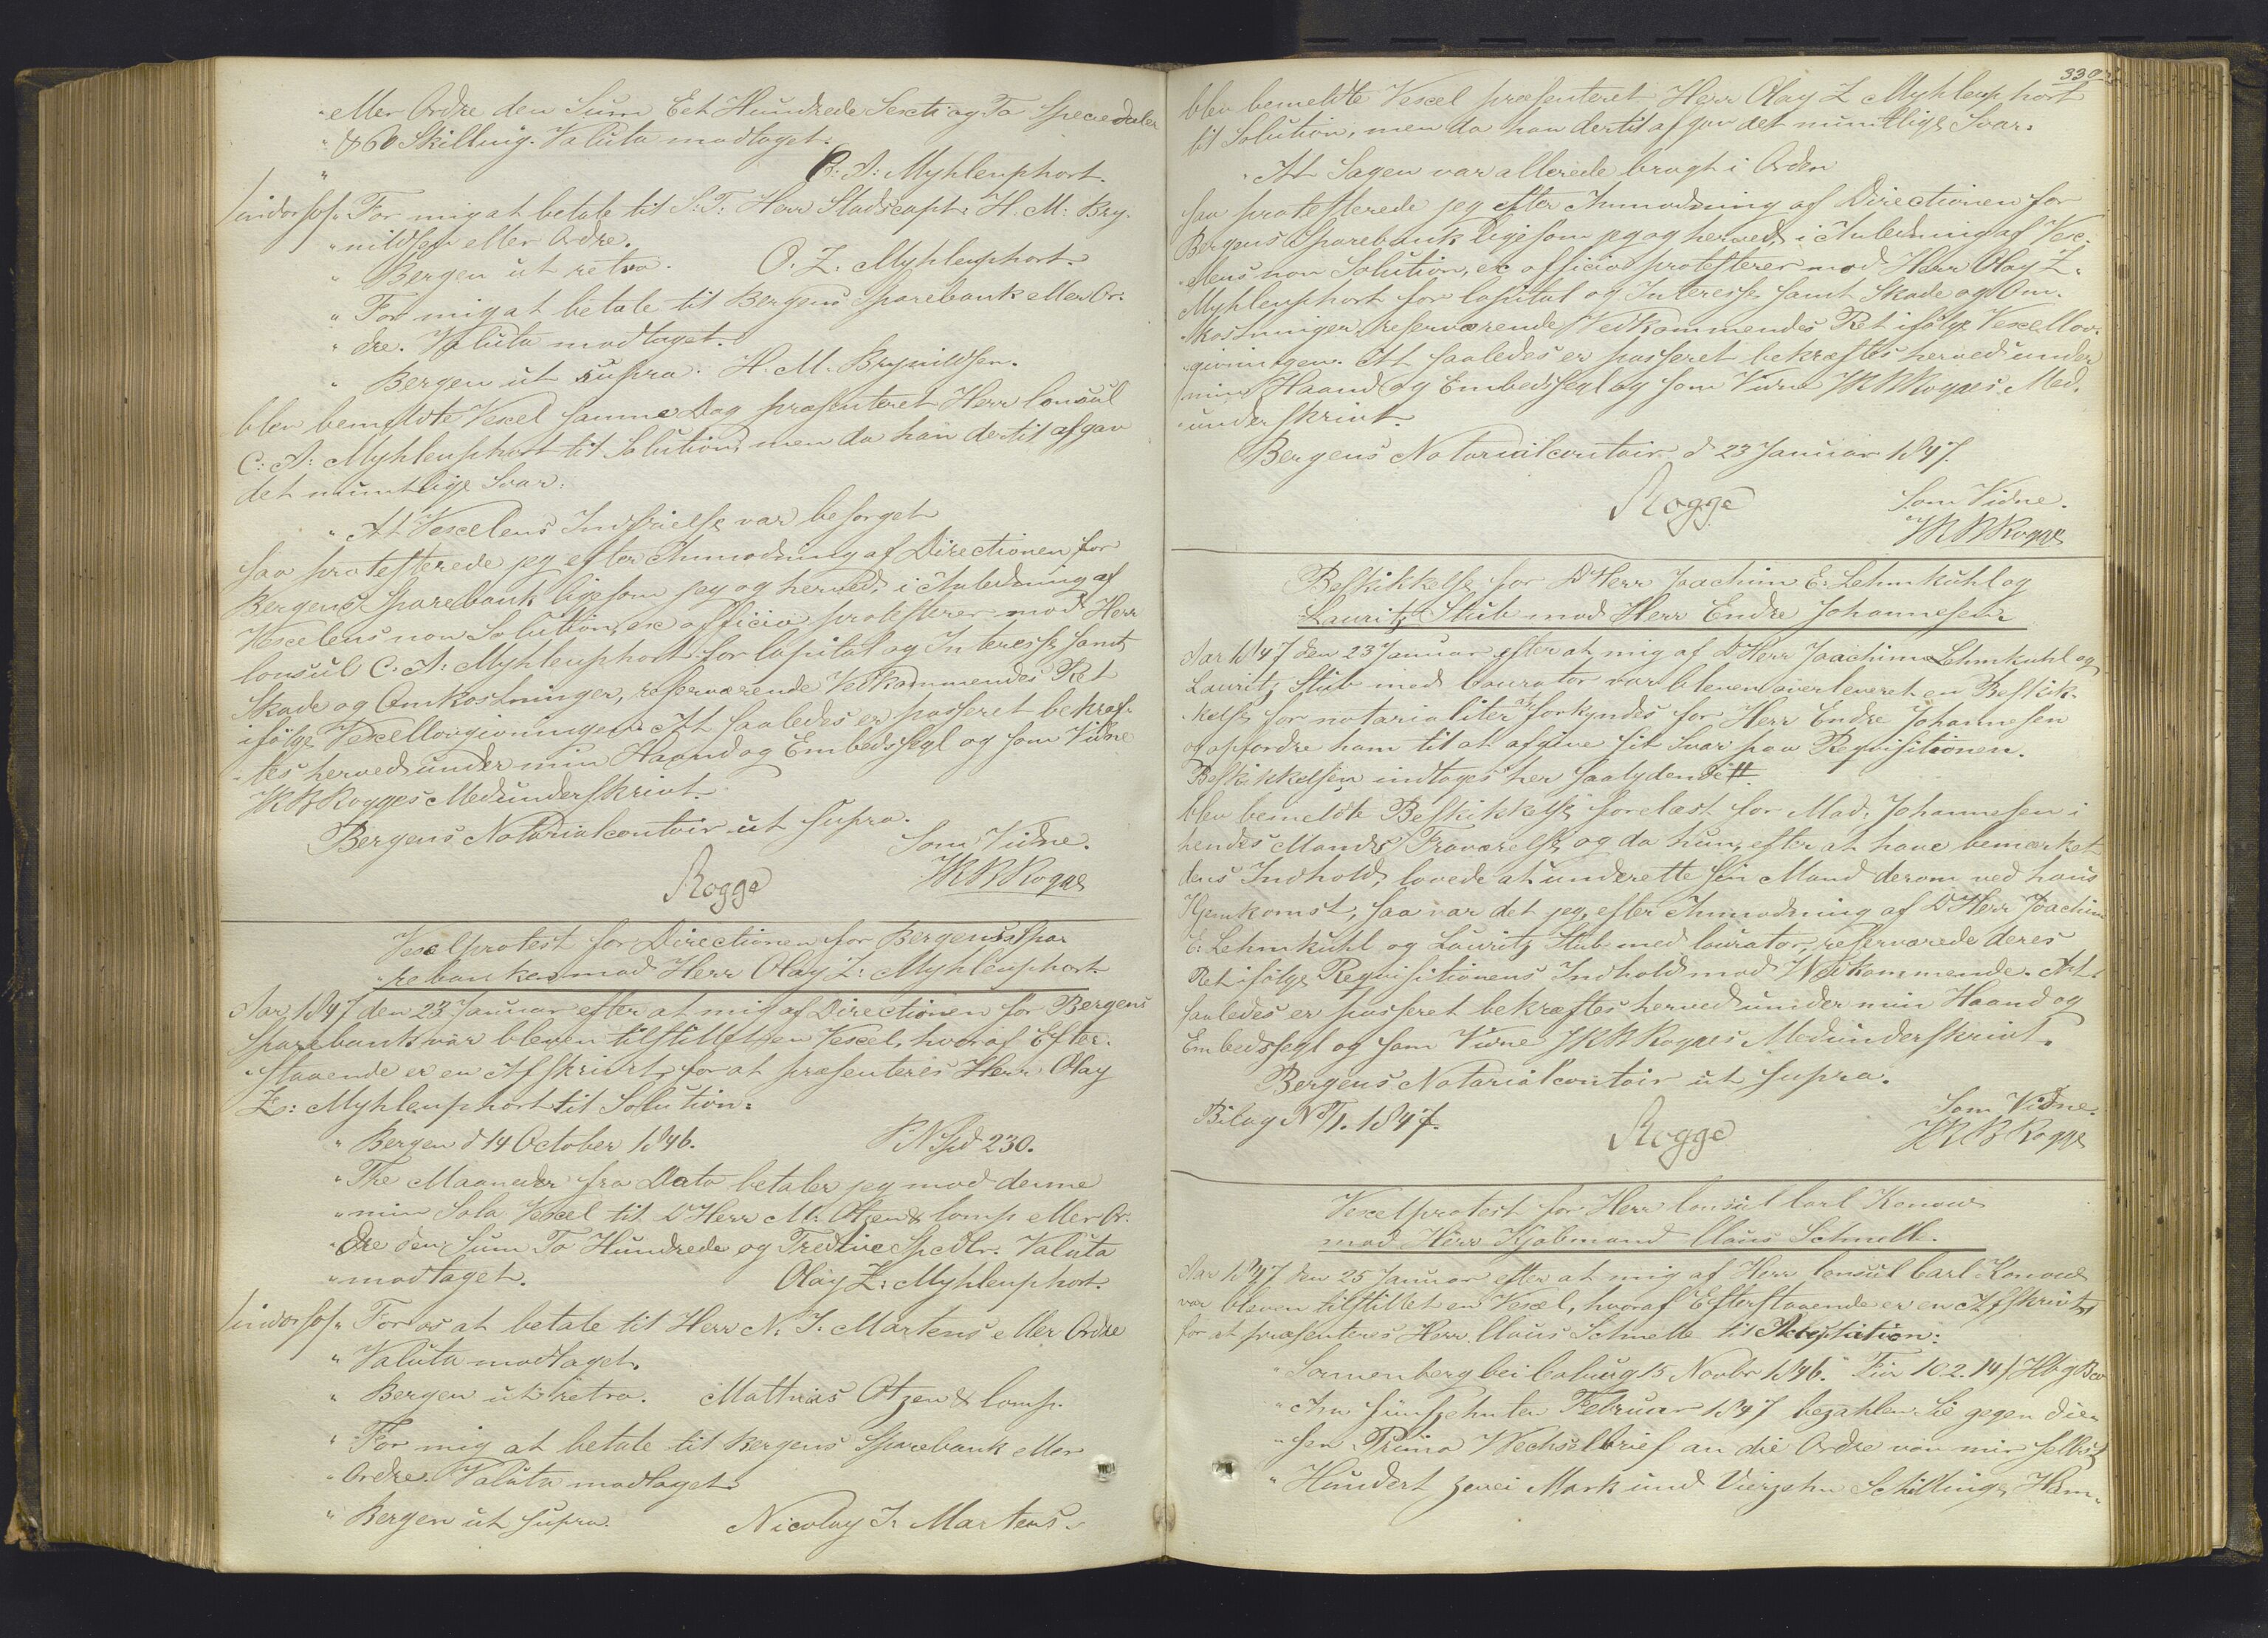 „eller Ordre den Sum Eet Hundrede Sexti og To Speciedaler
„& 60 Skilling. Valuta modtaget.
„ C: A: Myhlenphort.
/indoss/ „For mig at betale til S: T: Herr Stadscapt: H. M: Bry-
„nildsen eller Ordre.
„ Bergen ut retro. O. Z: Myhlenphort.
„ For mig at betale til Bergens Sparebank eller Or-
„ dre. Valuta modtaget.
„ Bergen ut supra. H. M. Brynildsen.
blev bemeldte Vexel samme Dag præsenteret Herr Consul
C: A: Myhlenphort til Solution, men da han dertil afgav
det mundtlige Svar:
„At Vexelens Indfrielse var besørget
saa protesterede jeg efter Anmodning af Directionen for
Bergens Sparebank ligesom jeg og herved, i Anledning af
Vexelens non Solution, ex officio protesterer mod Herr
Consul C: A: Myhlenphort for Capital og Interesse samt
Skade og Omkostninger, reserverende Vedkommendes Ret
ifølge Vexellovgivningen. At saaledes er passeret bekræf-
tes herved under min Haand og Embedssegl og som Vidne
JKBRogges Medunderskrivt.
Bergens Notarialcontoir ut supra.
Som Vidne.
Rogge JKBRogge
Vexelprotest for Directionen for Bergens Spa-
rebanken mod Herr Olay Z: Myhlenphort.
Aar 1847 den 23 Januar efter at mig af Directionen for Bergens
Sparebank var bleven tilstillet en Vexel, hvoraf Efter-
staaende er en Afskrivt, for at præsenteres Herr Olay
Z: Myhlenphort til Solution:
„ Bergen d 14 October 1846. Spd 230.
„Tre Maaneder fra Dato betaler jeg mod denne
„min Sola Vexel til D'Herr M: Otzen & Comp eller Or-
„dre den Sum To Hundrede og Tredive Spcdlr. Valuta
„modtaget. Olay Z: Myhlenphort.
/indoss/ „For os at betale til Herr N. J. Martens eller Ordre
„ Valuta modtaget.
„ Bergen ut retro. Mathias Otzen & Comp.
„ For mig at betale til Bergens Sparebank eller
„Ordre. Valuta modtaget.
„ Bergen ut supra. Nicolay J: Martens.
330
blev bemeldte Vexel præsenteret Herr Olay Z Myhlenphort
til Solution, men da han dertil afgav det mundtlige Svar:
„At Sagen var allerede bragt i Orden
saa protesterede jeg efter Anmodning af Directionen for
Bergens Sparebank ligesom jeg og herved, i Anledning af Vex-
elens non Solution, ex officio protesterer mod Herr Olay Z.
Myhlenphort for Capital og Interesse, samt Skade og Om-
kostninger, reserverende Vedkommendes Ret ifølge Vexellov-
givningen. At saaledes er passeret bekræftes herved under
min Haand og Embedssegl og som Vidne JKBRogges Med-
underskrivt.
Bergens Notarialcontoir d 23 Januar 1847.
Rogge Som Vidne.
JKBRogge
Beskikkelse for D'Herr Joachim E: Lehmkuhl og
Lauritz Stub mod Herr Endre Johannesen.
Aar 1847 den 23 Januar efter at mig af D'Herr Joachim Lehmkuhl og
Lauritz Stub med Curator var bleven overleveret en Beskik-
kelse for notarialiter at forkyndes for Herr Endre Johannesen
og opfordre ham til at afgive sit Svar paa Reqvisitionen.
Beskikkelsen indtages her saalydende #
blev bemeldte Beskikkelse forelæst for Mad. Johannesen i
hendes Mands Fraværelse, og da hun, efter at have bemærket
dens Indhold, lovede at underrette sin Mand derom ved hans
Hjemkomst, saa var det jeg, efter Anmodning af D'Herr Joachim
E: Lehmkuhl og Lauritz Stub med Curator, reserverede deres
Ret ifølge Reqvisitionens Indhold mod Vedkommende. At
saaledes er passeret bekræftes herved under min Haand og
Embedssegl og som Vidne JKBRogges Medunderskrivt.
Bergens Notarialcontoir ut supra.
Bilag No 1. 1847. Som Vidne.
Rogge JKBRogge
Vexelprotest for Herr Consul Carl Konow
mod Herr Kjøbmand Claus Schmelle.
Aar 1847 den 25 Januar efter at mig af Herr Consul Carl Konow
var bleven tilstillet en Vexel, hvoraf Efterstaaende er en Afskrivt
for at præsenteres Herr Claus Schmelle til Acceptation:
„Sonnenberg bei Coburg 15 Novbr 1846. Für 102. 14/ Hbg Bco
„Am fünfzehnten Februar 1847 bezahlen Sie gegen die-
„sen Prima Wechselbrief an die Ordre von mir selbst
„Hundert zwei Mark und Vierzehn Schillinge Ham-